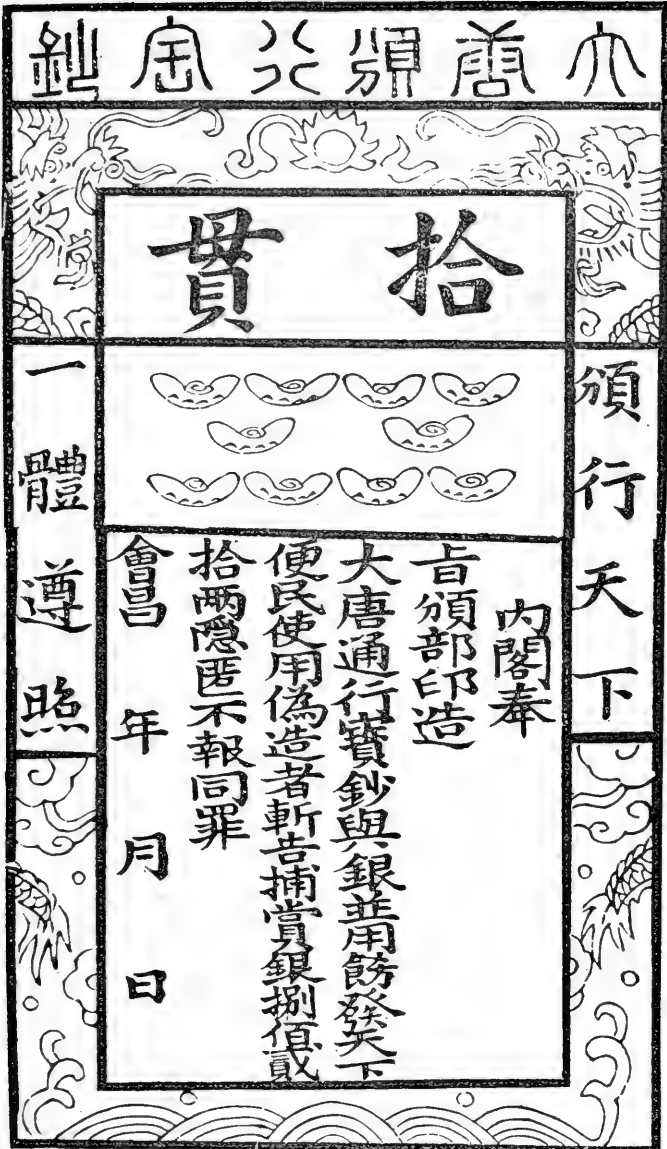 大唐頒行寶鈔
拾貫
頒行天下
一體遵照
內閣奉
旨頒部印造
大唐通行寶鈔與銀並用餝發天下
便民使用偽造者斬告捕賞銀捌佰貳
拾兩隱匿不報同罪
會昌 年 月 日